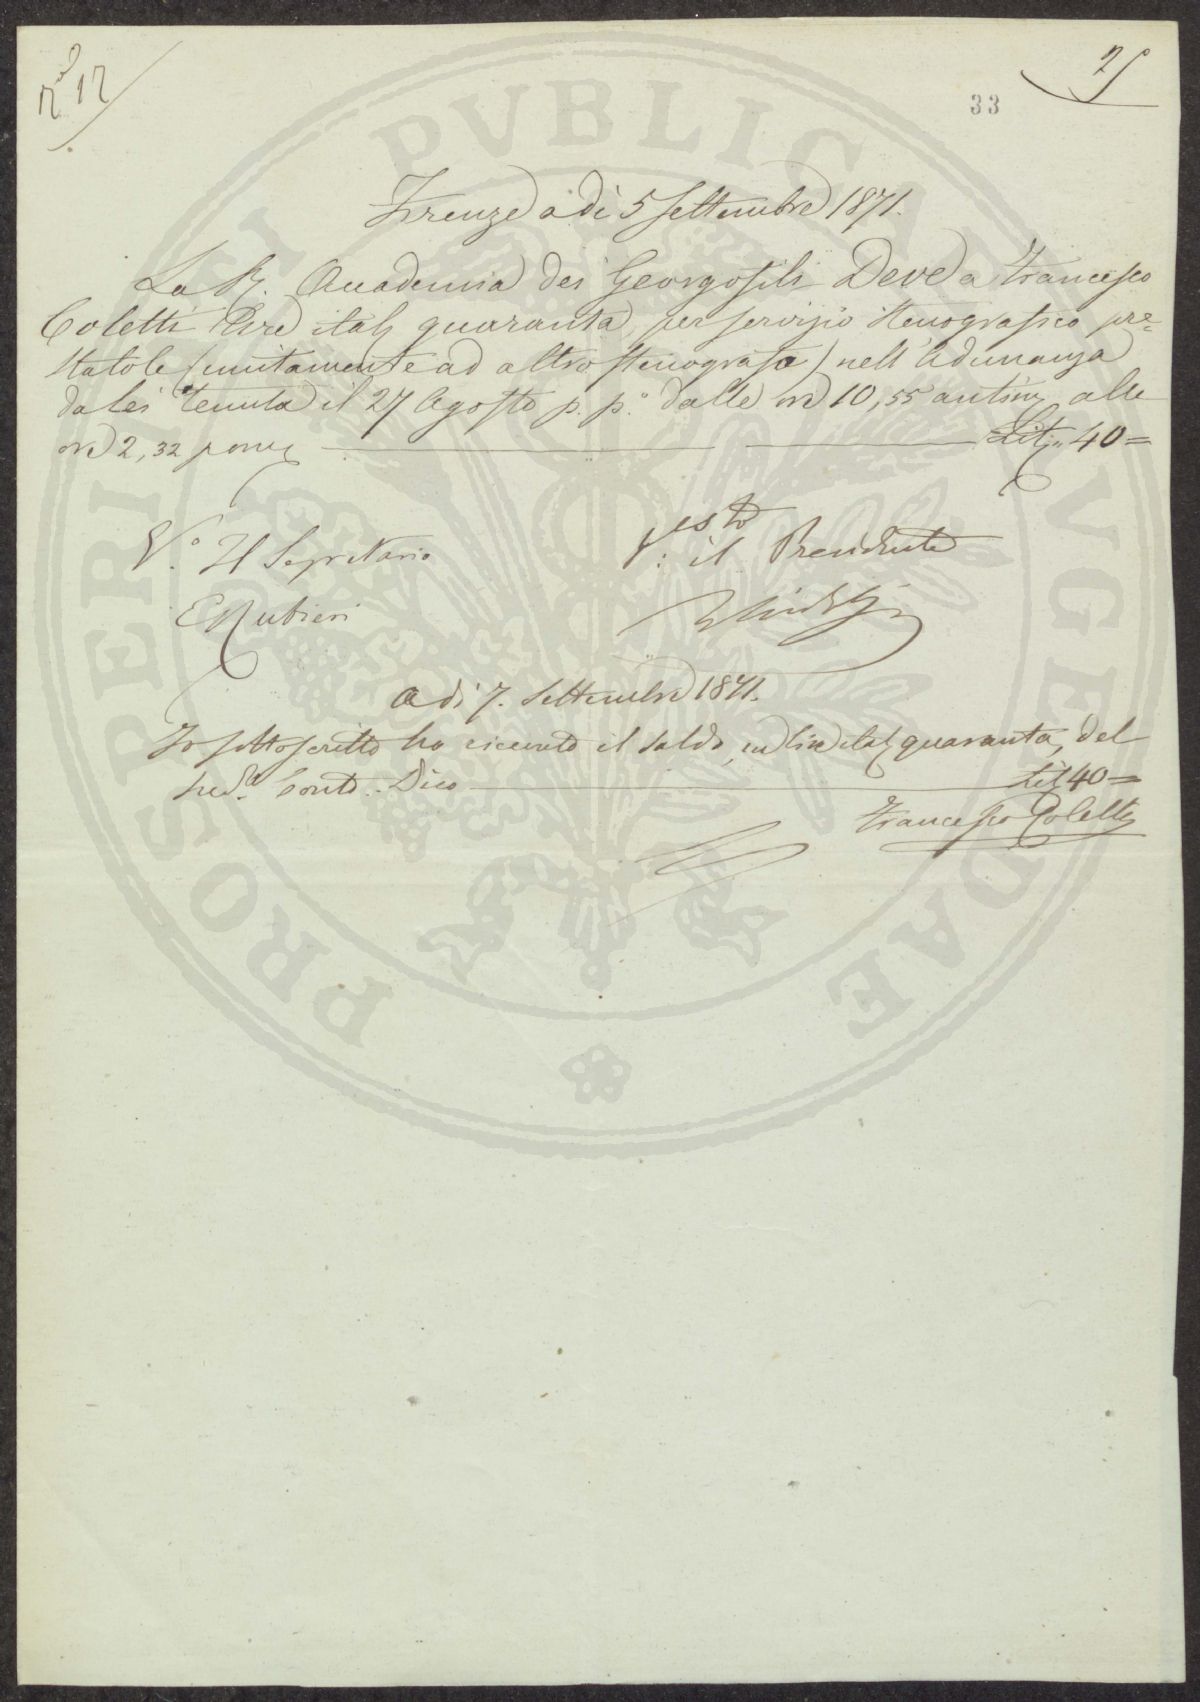 17
33
Firenze a dì 5 Settembre 1871.
La R. Accademia dei Georgofili Deve a Francesco
Coletti Lire ital. quaranta, per servizio stenografico pre=
statole (unitamente ad altro stenografo) nell'Adunanza
da lei tenuta il 27 Agosto p. p.º dalle ore 10,55 antim. alle
ore 2,32 pom. Lit. 40=
V.º Il Segretario
visto: il Presidente
E Rubieri
A di 7. Settembre 1871.
Io sottoscritto ho ricevuto il saldo, in lire ital. quaranta, del
sud.º Conto. Dico Lit. 40=
Francesco Coletti
PROSPERITATI PVBLICAE AVGENDAE